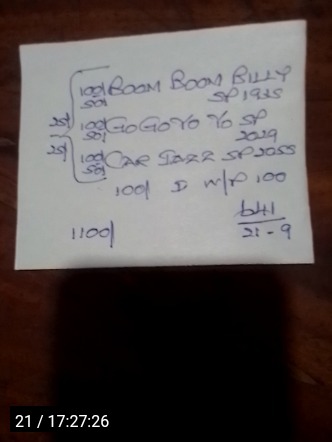 100/ BOOM BOOM BILLY
50/ SP 1925
100/ GO GO YO YO SP
50/ 2029
100/ CAR JAZZ SP 2055
50/
100/ D W/P 100
1100/
21-9
21 / 17:27:26